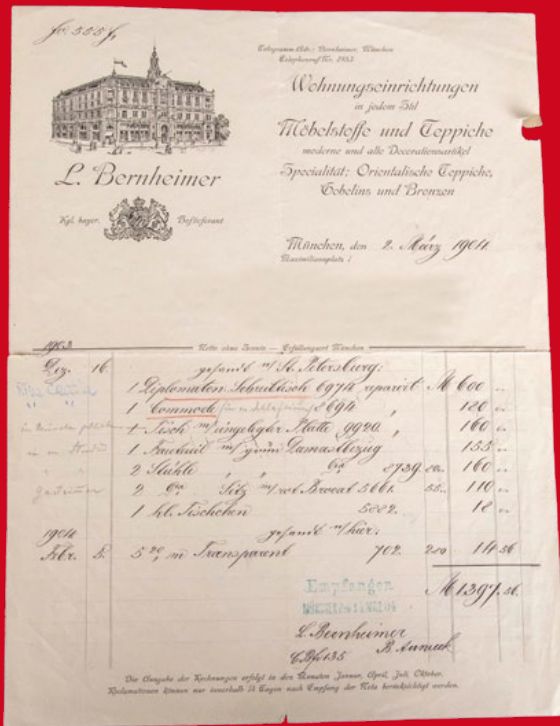 Telegramm-Adr.: Bernheimer, München
Telephonruf Nr. 2953
Wohnungseinrichtungen
in jedem Stil
Möbelstoffe und Teppiche
moderne und alte Decorationsartikel
Specialität: Orientalische Teppiche,
Gobelins und Bronzen
L. Bernheimer
Kgl. bayer. Hoflieferant
München, den 2. März 1904.
Maximiliansplatz
1903
Netto ohne Sconto — Erfüllungsort München
Dez. 16. gesandt n/ St. Petersburg:
1 Diplomaten-Schreibtisch 6974 reparirt M 600
1 Commode 120
1 Tisch m/ eingelegter Platte 9920 160
1 Fauteuil m/ grün Damastbezug 155
2 Stühle 8739 80 160
2 Sitz m/ rot Brocat 5661 55 110
1 kl. Tischchen 5882. 18
1904 gesandt n/ hier:
Febr. 5. 5 20 m Transparent 702. 280 14 56
M 1397.56
Empfangen
L. Bernheimer
Die Ausgabe der Rechnungen erfolgt in den Monaten Januar, April, Juli, Oktober.
Reclamationen können nur innerhalb 14 Tagen nach Empfang der Nota berücksichtigt werden.